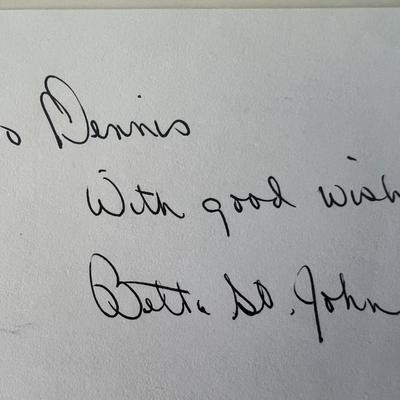 o Dennis
With good wish
Betta St. John